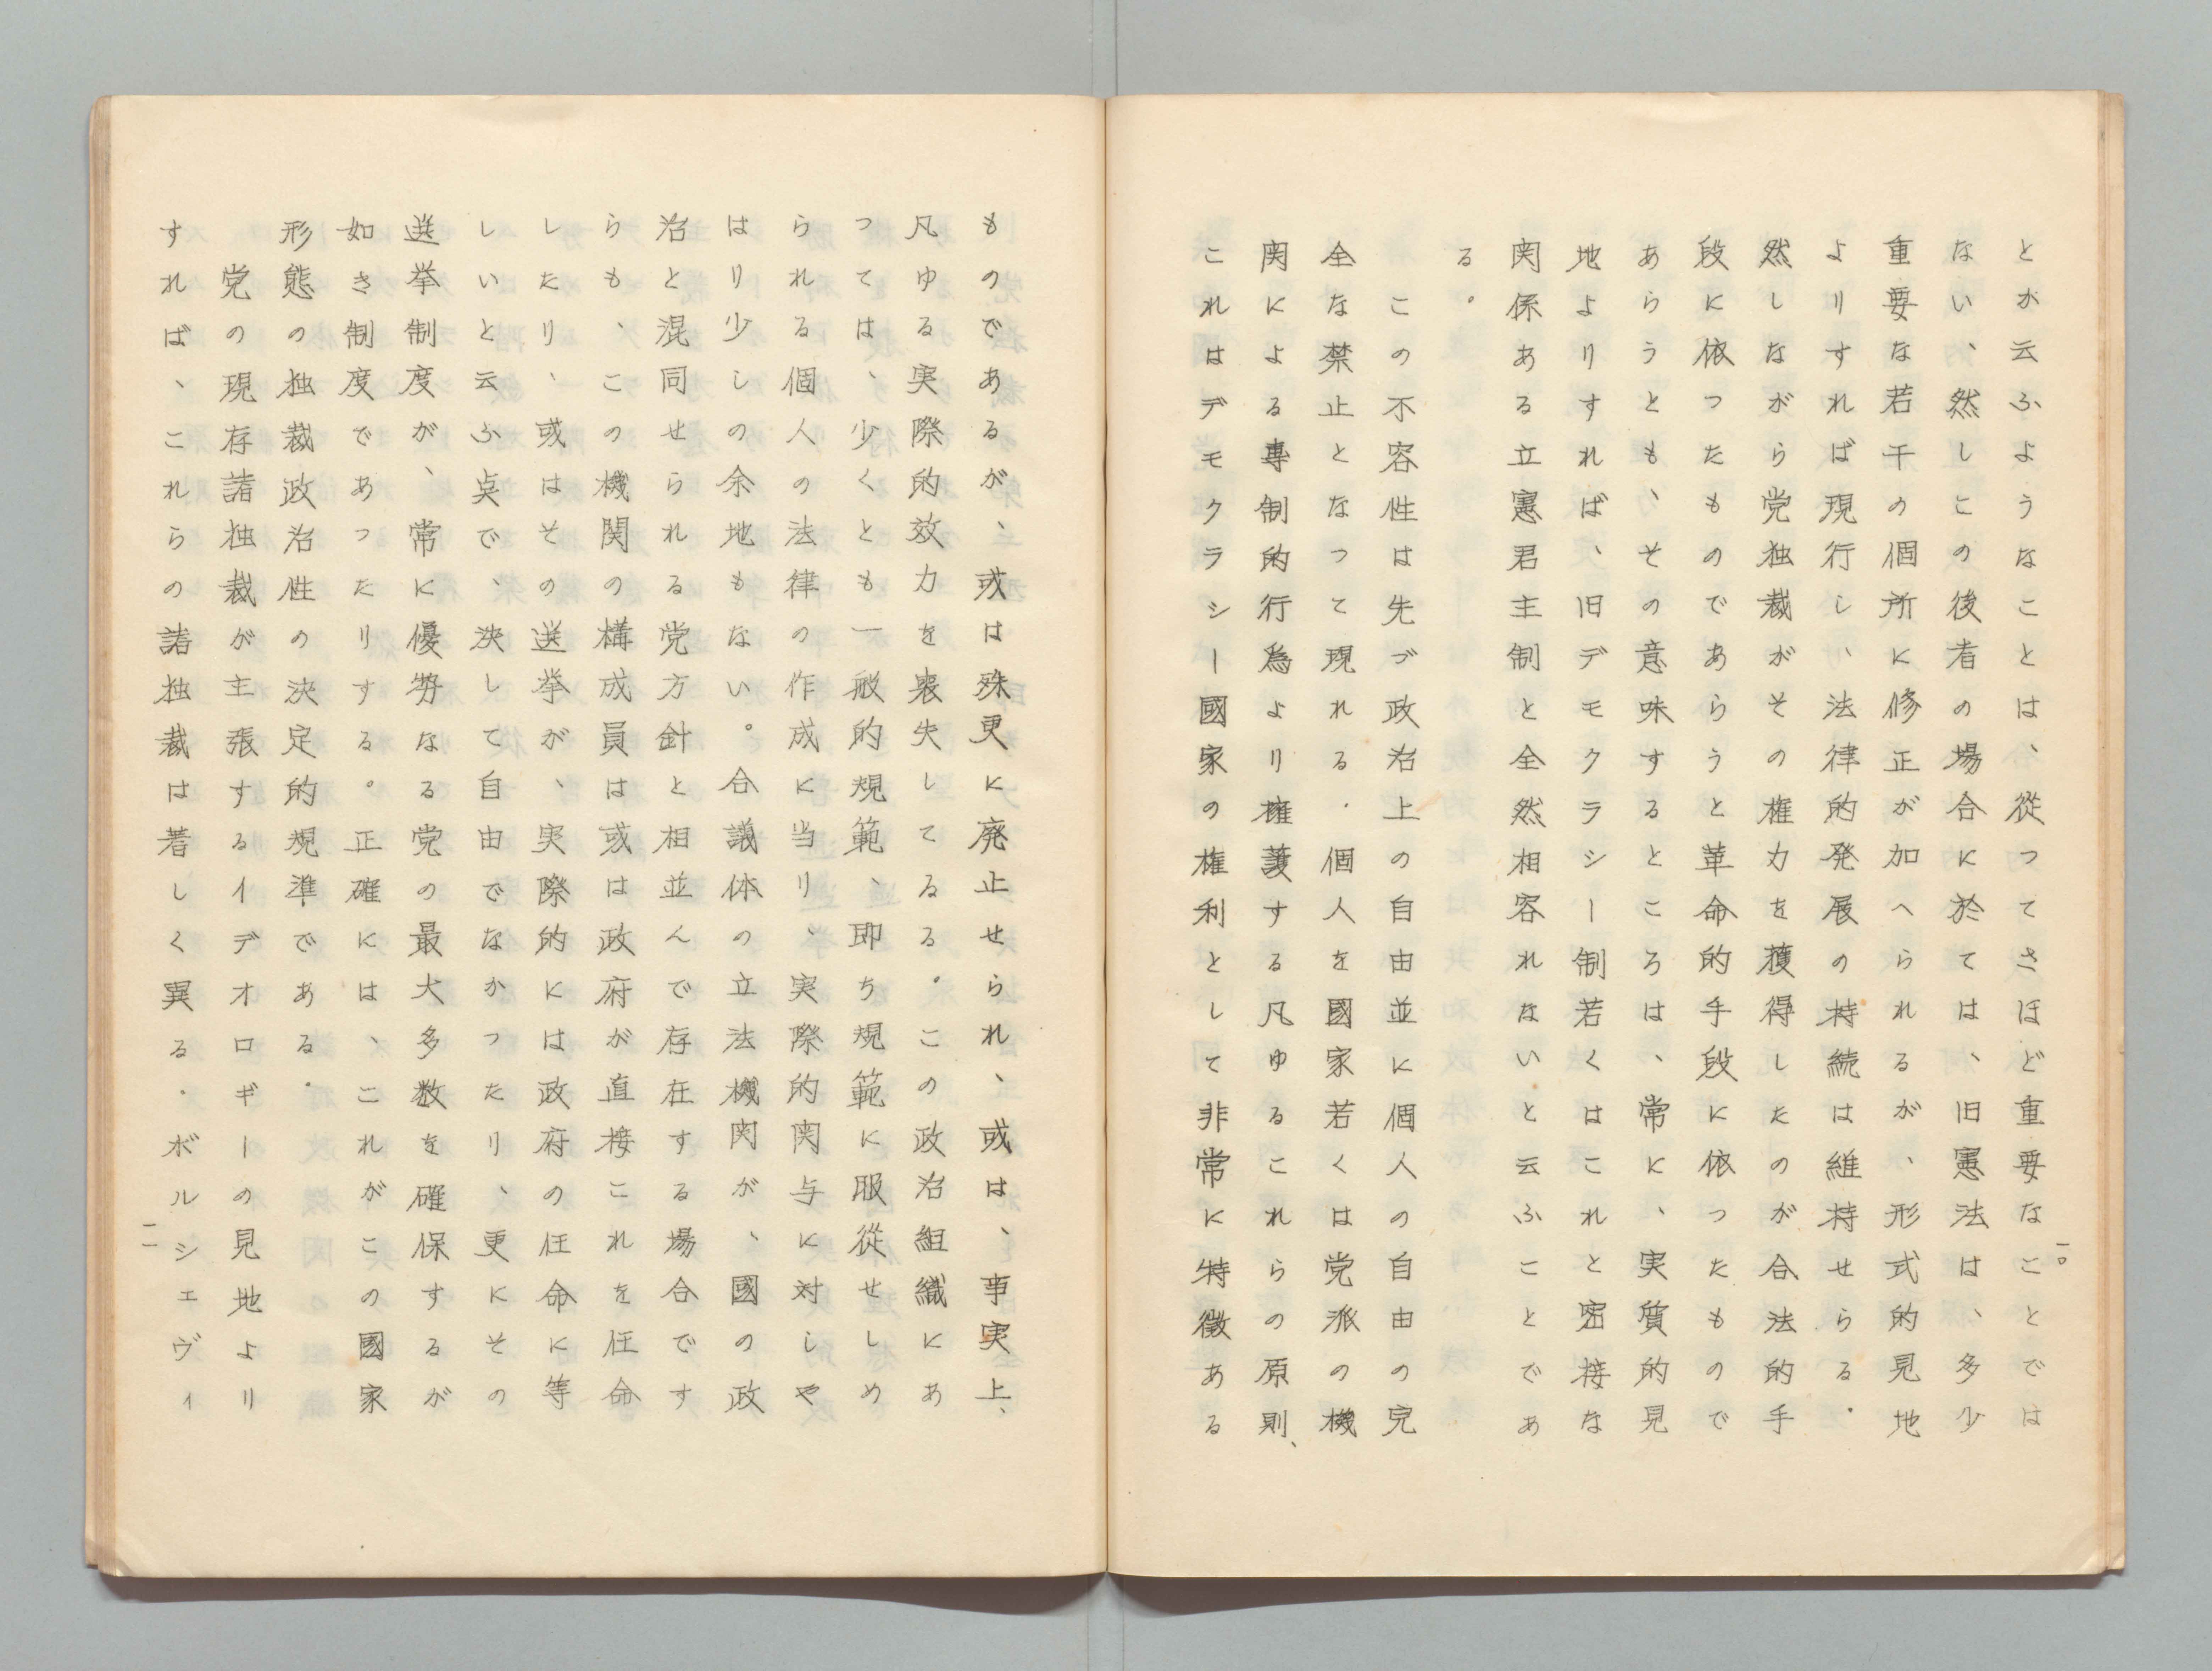 とか云ふようなことは、從つてさほど重要なことでは
ない、然しこの後者の場合に於ては、旧憲法は、多少
重要な若干の個所に修正が加へられるが、形式的見地
よりすれば現行し、法律的発展の持続は維持せらる。
然しながら党独裁がその権力を獲得したのが合法的手
段に依つたものであらうと革命的手段に依つたもので
あらうとも、その意味するところは、常に、実質的見
地よりすれば、旧デモクラシー制若くはこれと密接な
関係ある立憲君主制と全然相容れないと云ふことであ
る。
この不容性は先づ政治上の自由並に個人の自由の完
全な禁止となつて現れる。個人を國家若くは党派の機
関による専制的行為より擁護する凡ゆるこれらの原則、
これはデモクラシー國家の権利として非常に特徴ある
一〇
ものであるが、或は殊更に廃止せられ、或は、事実上、
凡ゆる実際的效力を喪失してゐる。この政治組織にあ
つては、少くとも一般的規範、即ち規範に服從せしめ
られる個人の法律の作成に当り、実際的関与に対しや
はり少しの余地もない。合議体の立法機関が、國の政
治と混同せられる党方針と相並んで存在する場合です
らも、この機関の構成員は或は政府が直接これを任命
したり、或はその選挙が、実際的には政府の任命に等
しいと云ふ点で、決して自由でなかつたり、更にその
選挙制度が、常に優勢なる党の最大多数を確保するが
如き制度であつたりする。正確には、これがこの國家
形態の独裁政治性の決定的規準である。
党の現存諸独裁が主張するイデオロギーの見地より
すれば、これらの諸独裁は著しく異る。ボルシェヴィ
一一